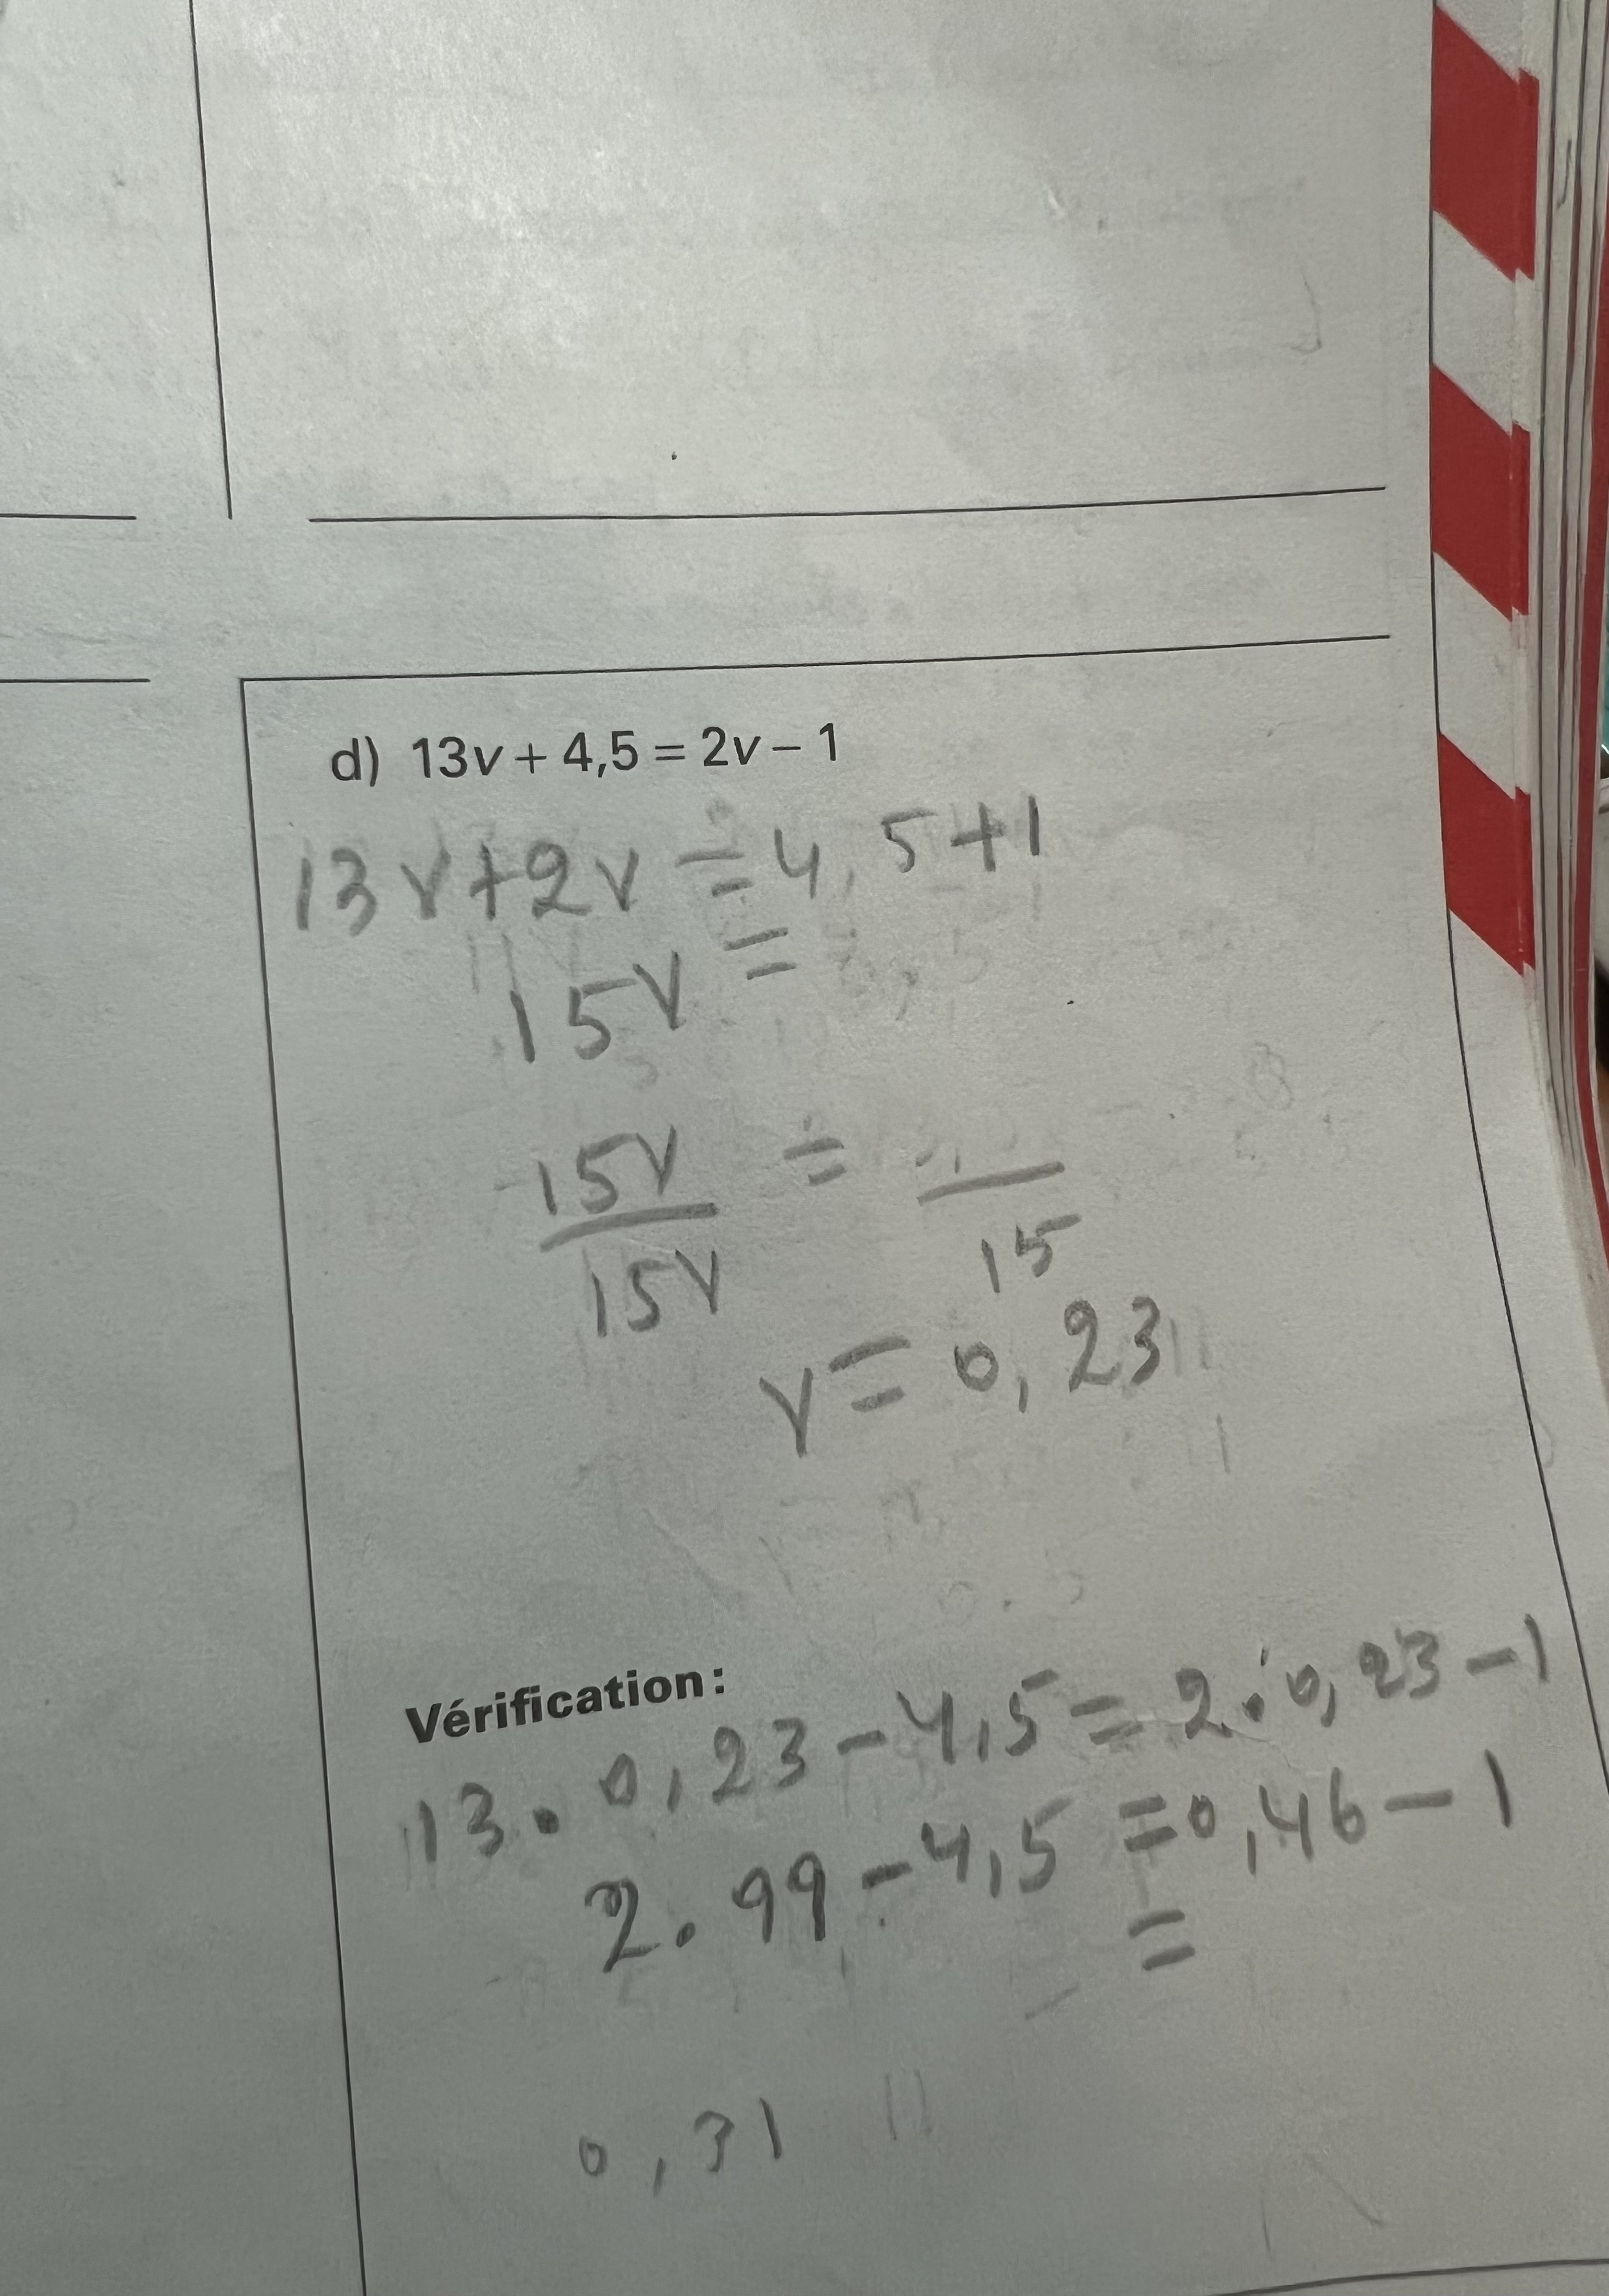 d) 13v + 4,5 = 2v – 1
13v+2v = 4,5+1
15v =
15v = 
15v 15
v = 0,23
Vérification:
13 • 0,23 - 4,5 = 2 • 0,23 - 1
2.99 - 4,5 = 0,46 - 1
=
0,31